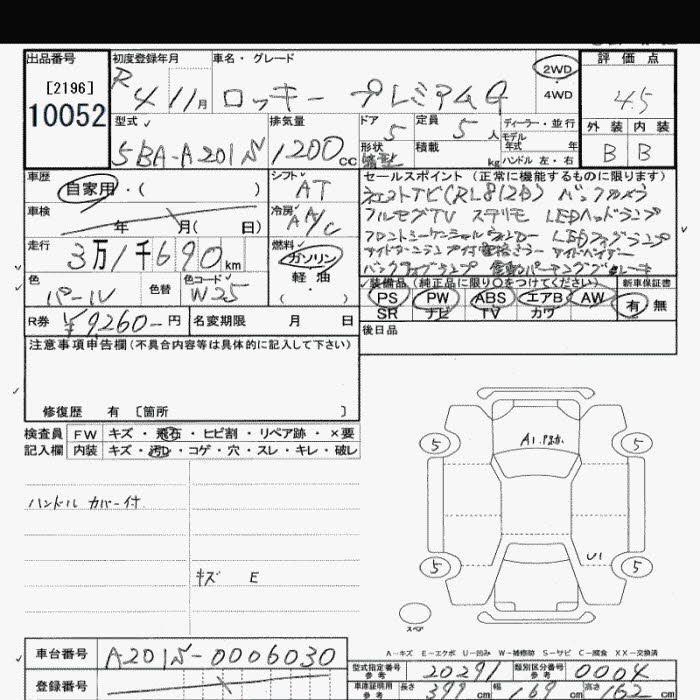 出品番号
[2196]
10052
初度登録年月
R4 11月
車名・グレード
ロッキー プレミアムG
2WD
4WD
評価点
4.5
外装 内装
B B
型式
5BA-A201S
排気量
1200cc
ドア
5
形状
定員
5人
積載
kg
ディーラー・並行
モデル
年式 年
ハンドル 左・右
車歴
自家用・( )
シフト
AT
車検
年 月( 日)
冷房
AA/C
走行
3万1千690km
燃料
ガソリン
・
軽油
色
パール
色替
色コード
W25
R券
¥9260-円
名変期限 月 日
セールスポイント(正常に機能するものに限ります)
バックカメラ
フルセグTV ステリモ LEDヘッドランプ
フロントシーケンシャルウィンカー LEDフォグランプ
サイドターンランプ付電格ミラー サイドバイザー
バックフォグランプ 電動パーキングブレーキ
装備品(純正品に限り〇をつけてください)
新車保証書
PS PW ABS エアB AW
SR ナビ TV カワ
有 無
後日品
注意事項申告欄(不具合内容等は具体的に記入して下さい)
修復歴 有 〔箇所 〕
検査員
記入欄
FW キズ・飛石・ヒビ割・リペア跡・×要
内装 キズ・汚れ・コゲ・穴・スレ・キレ・破レ
ハンドル カバー付
キズ E
5
5
A1.P跡.
5
5
U1
スペア
A-キズ E-エクボ U-凹み W-補修跡 S-サビ C-腐食 XX-交換済
車台番号
A201S-0006030
登録番号
型式指定番号
参考
20291
類別区分番号
参考
0004
車庫証明用
参考
長さ
399cm
幅
169cm
高さ
162cm